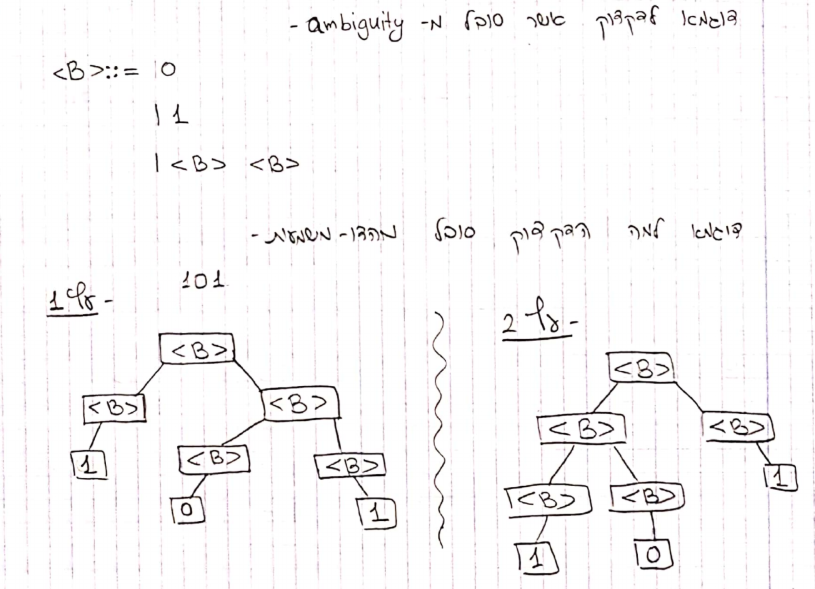 דוגמא לדקדוק אשר סובל מ- ambiguity -
<B>::= 0
| 1
| <B> <B>
דוגמא למה הדקדוק סובל מהדו-משמעות -
101
עץ 1 -
<B>
<B> <B>
1 <B> <B>
0 1
עץ 2 -
<B>
<B> <B>
<B> <B> 1
1 0